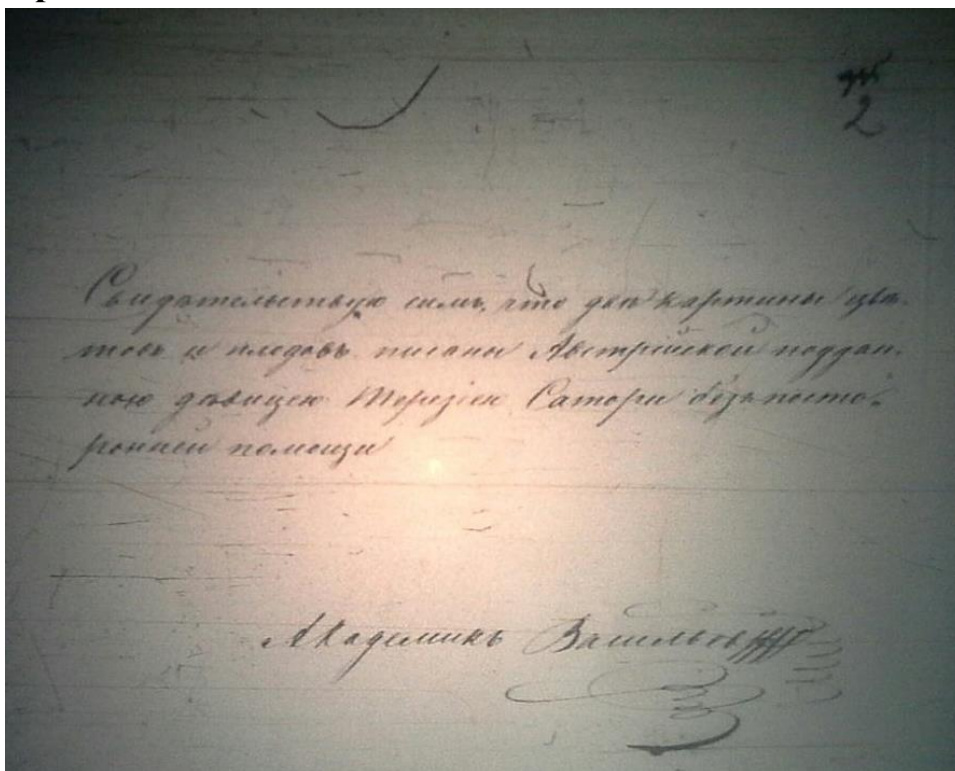 2
Свидѣтельствую симъ, что двѣ картины цвѣ-
товъ и плодовъ писаны Австрійской поддан-
ною дѣвицею Терезіею Сатори безъ посто-
ронней помощи
Академикъ